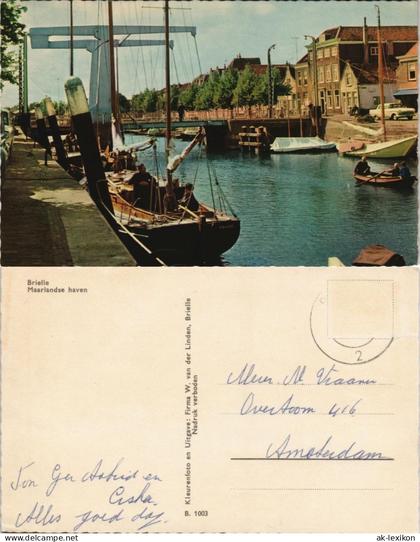 Brielle
Maarlandse haven
Kleurenfoto en Uitgave: Firma W. van der Linden, Brielle
Nadruk verboden
Ton Ger Astrid en
Ciska.
Alles goed dag.
B. 1003
2
Mevr. M. Vraanen
Overtoom 416
Amsterdam
© ak-lexikon